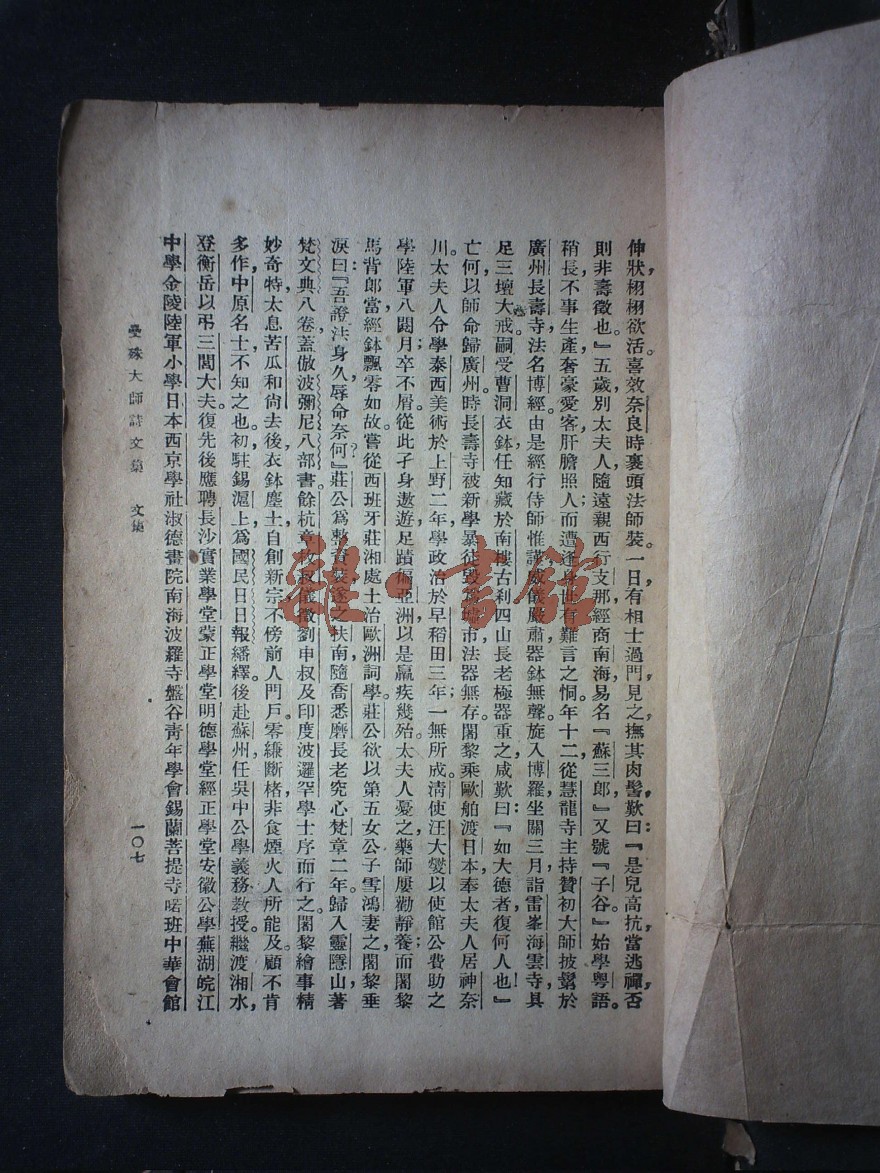 伸狀栩栩欲活。喜效奈良時裹頭法師裝。一日有相士過門，見之，撫其肉髻，歎曰：『是兒高抗，當逃禪，否
則非壽徵也。』五歲別太夫人，隨遠親西行支那，經商南海，易名『蘇三郎』，又號『子谷』，始學粵語。
稍長，不事生產，奢豪愛客，肝膽照人；而遭逢身世，有難言之恫。年十二，從慧龍寺主持贊初大師披鬀於
廣州長壽寺，法名博經。由是經行侍師惟謹，威儀嚴肅，器鉢無聲。旋入博羅，坐關三月，詣雷峯海雲寺，具
足三壇大戒，嗣受曹洞衣鉢，任知藏於南樓古刹。四山長老極器重之，咸歎曰：『如大德者，復何人也！』
亡何，以師命歸廣州。時長壽寺被新學暴徒毀為墟市，法器無存。闍黎乘歐舶渡日本，奉太夫人居神奈
川。太夫人令學泰西美術於上野二年，學政治於早稻田三年，一無所成。清使汪大燮以使館公費助之
學陸軍八閱月，卒不屑。從此孑身遨遊，足蹟徧亞洲，以是羸疾幾殆。太夫人憂之，藥師屢勸靜養；而闍黎
馬背郎當，經鉢飄零如故。嘗從西班牙莊湘處士治歐洲詞學。莊公欲以第五女公子雪鴻妻之，闍黎垂
淚曰：『吾證法身久，辱命奈何？』莊公為整資裝，遂之扶南，隨喬悉磨長老究心梵章二年。歸入靈隱山，著
梵文典八卷，蓋倣波彌尼八部書。餘杭章枚叔、儀徵劉申叔及印度波邏罕學士序而行之。闍黎繪事精
妙奇特，太息苦瓜和尚去後，衣鉢塵土，自創新宗，不傍前人門戶。零縑斷楮，非食煙火人所能及。顧不肯
多作，中原名士不知之也。初駐錫滬上，為國民日日報繙繹。後赴蘇州任吳中公學義務教授。繼渡湘水，
登衡岳以弔三閭大夫。復先後應聘長沙實業學堂蒙正學堂明德學堂經正學堂安徽公學蕪湖皖江
中學金陵陸軍小學日本西京學社淑德書院南海波羅寺盤谷青年學會錫蘭菩提寺喏班中華會館
曼殊大師詩文集　文集　一〇七
雜·書館